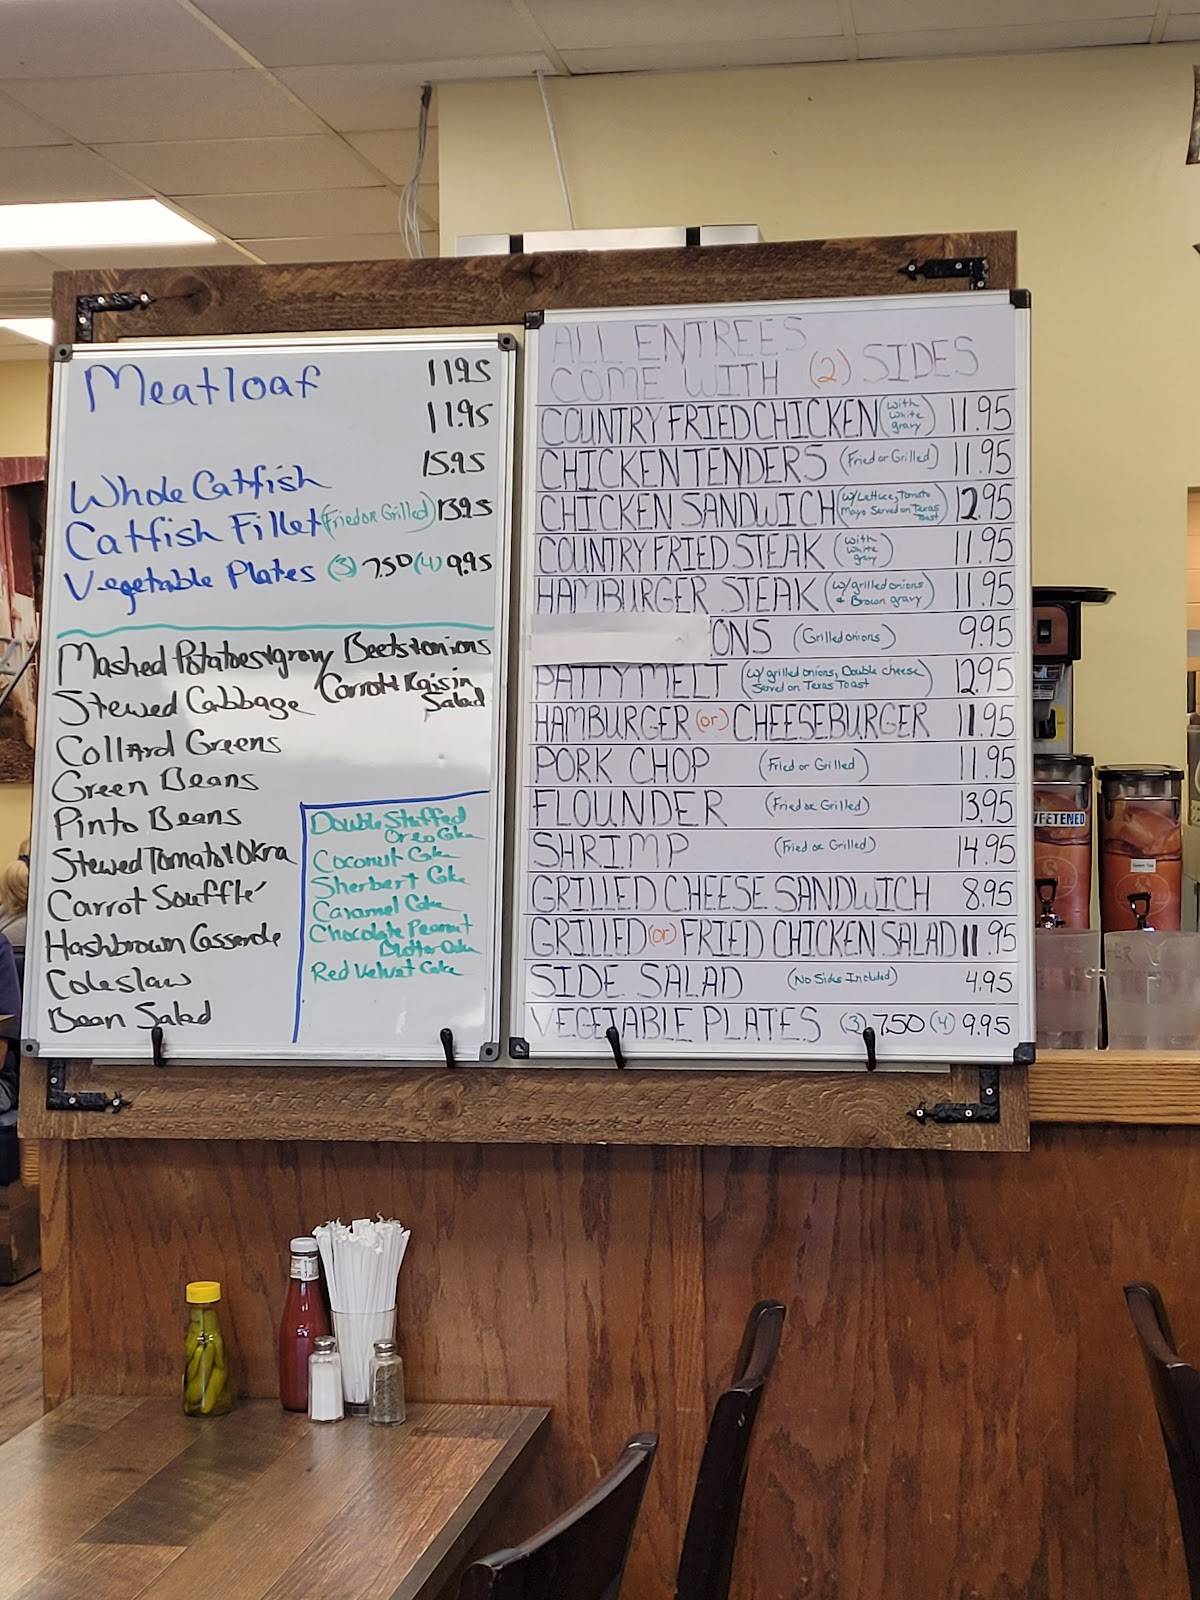 Meatloaf 11.95
11.95
Whole Catfish 15.95
Catfish Fillet (Fried or Grilled) 13.95
Vegetable Plates (3) 7.50 (4) 9.95
Mashed Potatoes & gravy
Stewed Cabbage
Collard Greens
Green Beans
Pinto Beans
Stewed Tomato & Okra
Carrot Soufflé
Hashbrown Casserole
Coleslaw
Bean Salad
Beets & onions
Carrot & Raisin
Salad
Double Stuffed
Oreo Cake
Coconut Cake
Sherbert Cake
Caramel Cake
Chocolate Peanut
Butter Cake
Red Velvet Cake
ALL ENTREES
COME WITH (2) SIDES
COUNTRY FRIED CHICKEN (with white gravy) 11.95
CHICKEN TENDERS (Fried or Grilled) 11.95
CHICKEN SANDWICH (w/ Lettuce, Tomato Mayo Served on Texas Toast) 12.95
COUNTRY FRIED STEAK (with white gravy) 11.95
HAMBURGER STEAK (w/ grilled onions & Brown gravy) 11.95
ONS (Grilled onions) 9.95
PATTY MELT (w/ grilled onions, Double cheese Served on Texas Toast) 12.95
HAMBURGER (or) CHEESEBURGER 11.95
PORK CHOP (Fried or Grilled) 11.95
FLOUNDER (Fried or Grilled) 13.95
SHRIMP (Fried or Grilled) 14.95
GRILLED CHEESE SANDWICH 8.95
GRILLED (or) FRIED CHICKEN SALAD 11.95
SIDE SALAD (No Sides Included) 4.95
VEGETABLE PLATES (3) 7.50 (4) 9.95